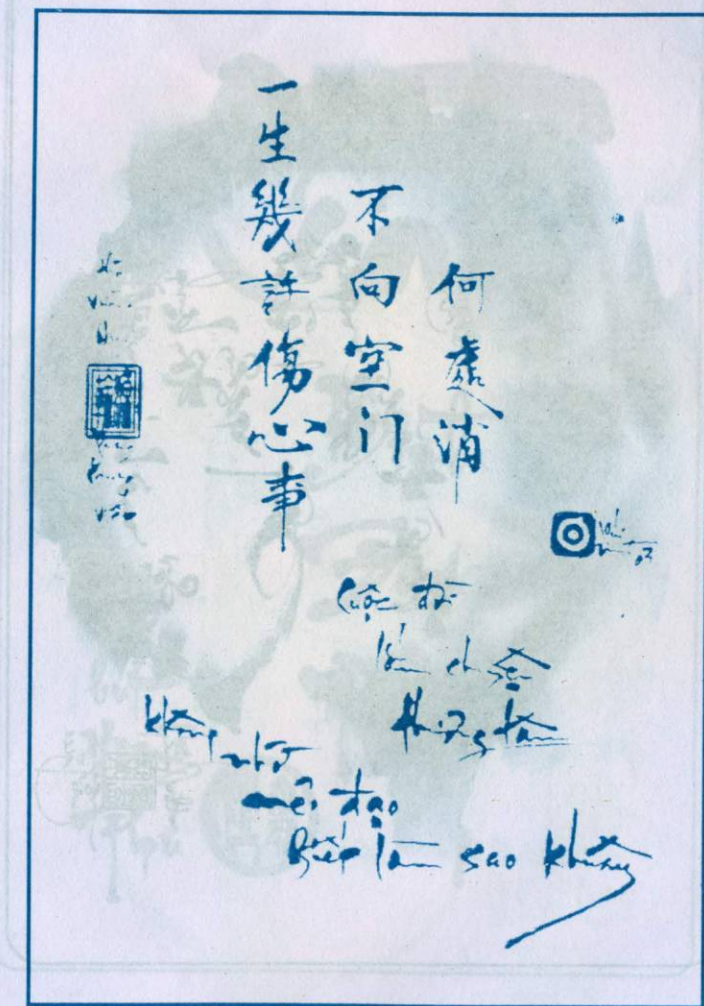 一生幾許傷心事
不向空门
何處消
Cuộc đời
lắm chuyện
thương tâm
không nhờ
đạo
Biết làm sao khuây